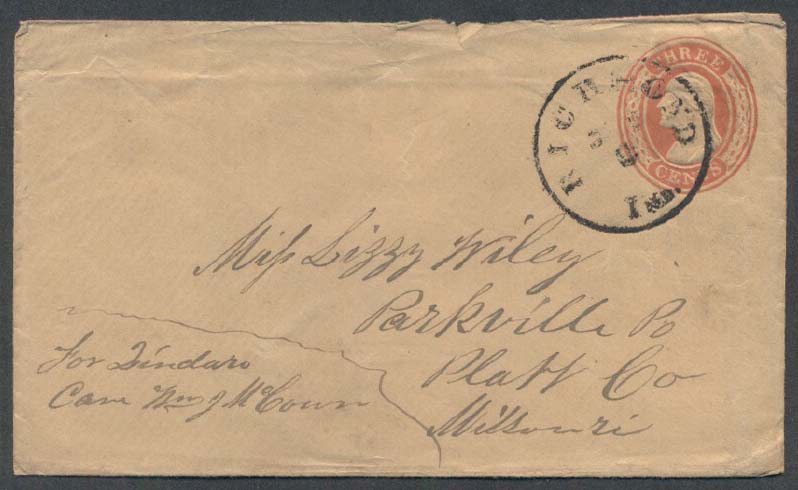 THREE
CENTS
RICHMOND
Ind.
Miss Lizzy Wiley
Parkville Po
Platt Co
Missouri
For Zindaro
Care Wm J McCown